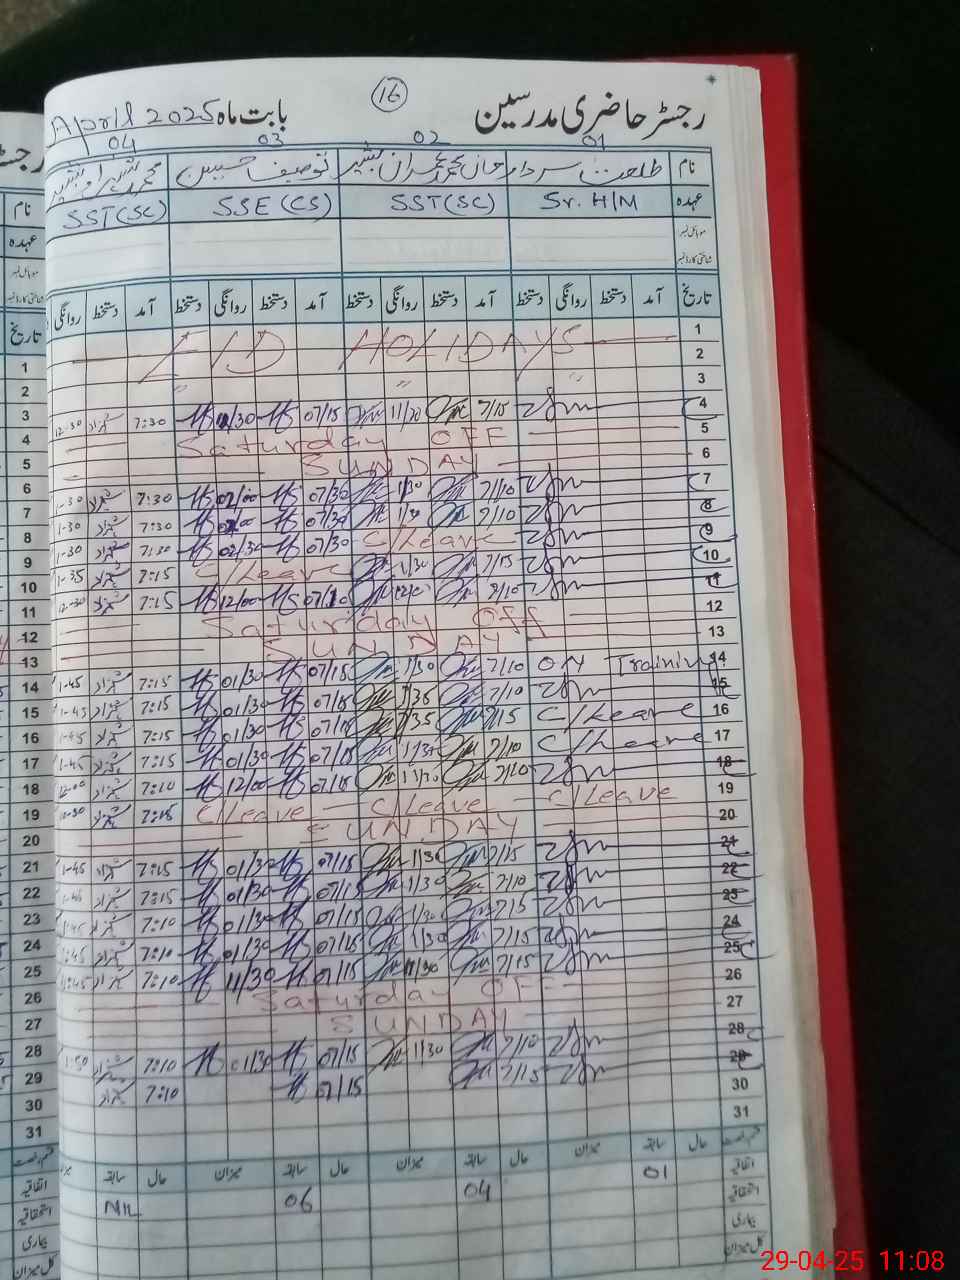 رجسٹر حاضری مدرسین 16 بابت ماہ April 2025
01 02 03 04
نام طلعت سردار توصیف حسین
عہدہ Sr. H/M SST(SC) SSE (CS) SST(SC)
موبائل نمبر
شناختی کارڈ نمبر
تاریخ آمد دستخط روانگی دستخط آمد دستخط روانگی دستخط آمد دستخط روانگی دستخط آمد دستخط روانگی
1 EID HOLIDAYS
2
3 〃 〃 〃
4 7/15 11/20 07/15 11/30 7:30 12-30
5 Saturday OFF
6 SUNDAY
7 7/10 1/30 07/30 02/00 7:30 1-30
8 7/10 1/30 07/30 7:30 1-30
9 C/Leave 07/30 02/30 7:30 1-30
10 7/15 1/30 C/Leave 7:15 1-35
11 12/00 7:15 12-30
12 Saturday Off
13 SUNDAY
14 ON Training 7/10 1/30 07/15 01/30 7:15 1-45
15 7/10 1/35 07/15 01/30 7:15 1-45
16 C/Leave 7/15 1/35 07/15 01/30 7:15 1-45
17 C/Leave 7/10 1/30 07/15 01/30 7:15 1-45
18 7/10 11/30 07/15 12/00 7:10 12-00
19 C/Leave C/Leave C/Leave 7:15 12-30
20 SUNDAY
21 7/15 1/30 07/15 01/30 7:15 1-45
22 7/10 1/30 07/15 01/30 7:15 1-45
23 7/15 1/30 07/15 01/30 7:10 1-45
24 7/15 1/30 07/15 01/30 7:10 1-45
25 7/15 11/30 07/15 11/30 7:10 1-45
26 Saturday OFF
27 SUNDAY
28 7/10 1/30 07/15 01/30 7:10 1-50
29 7/15 07/15 7:10
30
31
قسم رخصت حال سابقہ میزان حال سابقہ میزان حال سابقہ میزان حال سابقہ میزان
اتفاقیہ 01 04 06 NIL
استحقاقیہ
بیماری
کل میزان
رجسٹر
نام
عہدہ
موبائل نمبر
شناختی کارڈ نمبر
تاریخ
1
2
3
4
5
6
7
8
9
10
11
12
13
14
15
16
17
18
19
20
21
22
23
24
25
26
27
28
29
30
31
قسم رخصت
اتفاقیہ
استحقاقیہ
بیماری
کل میزان
29-04-25 11:08